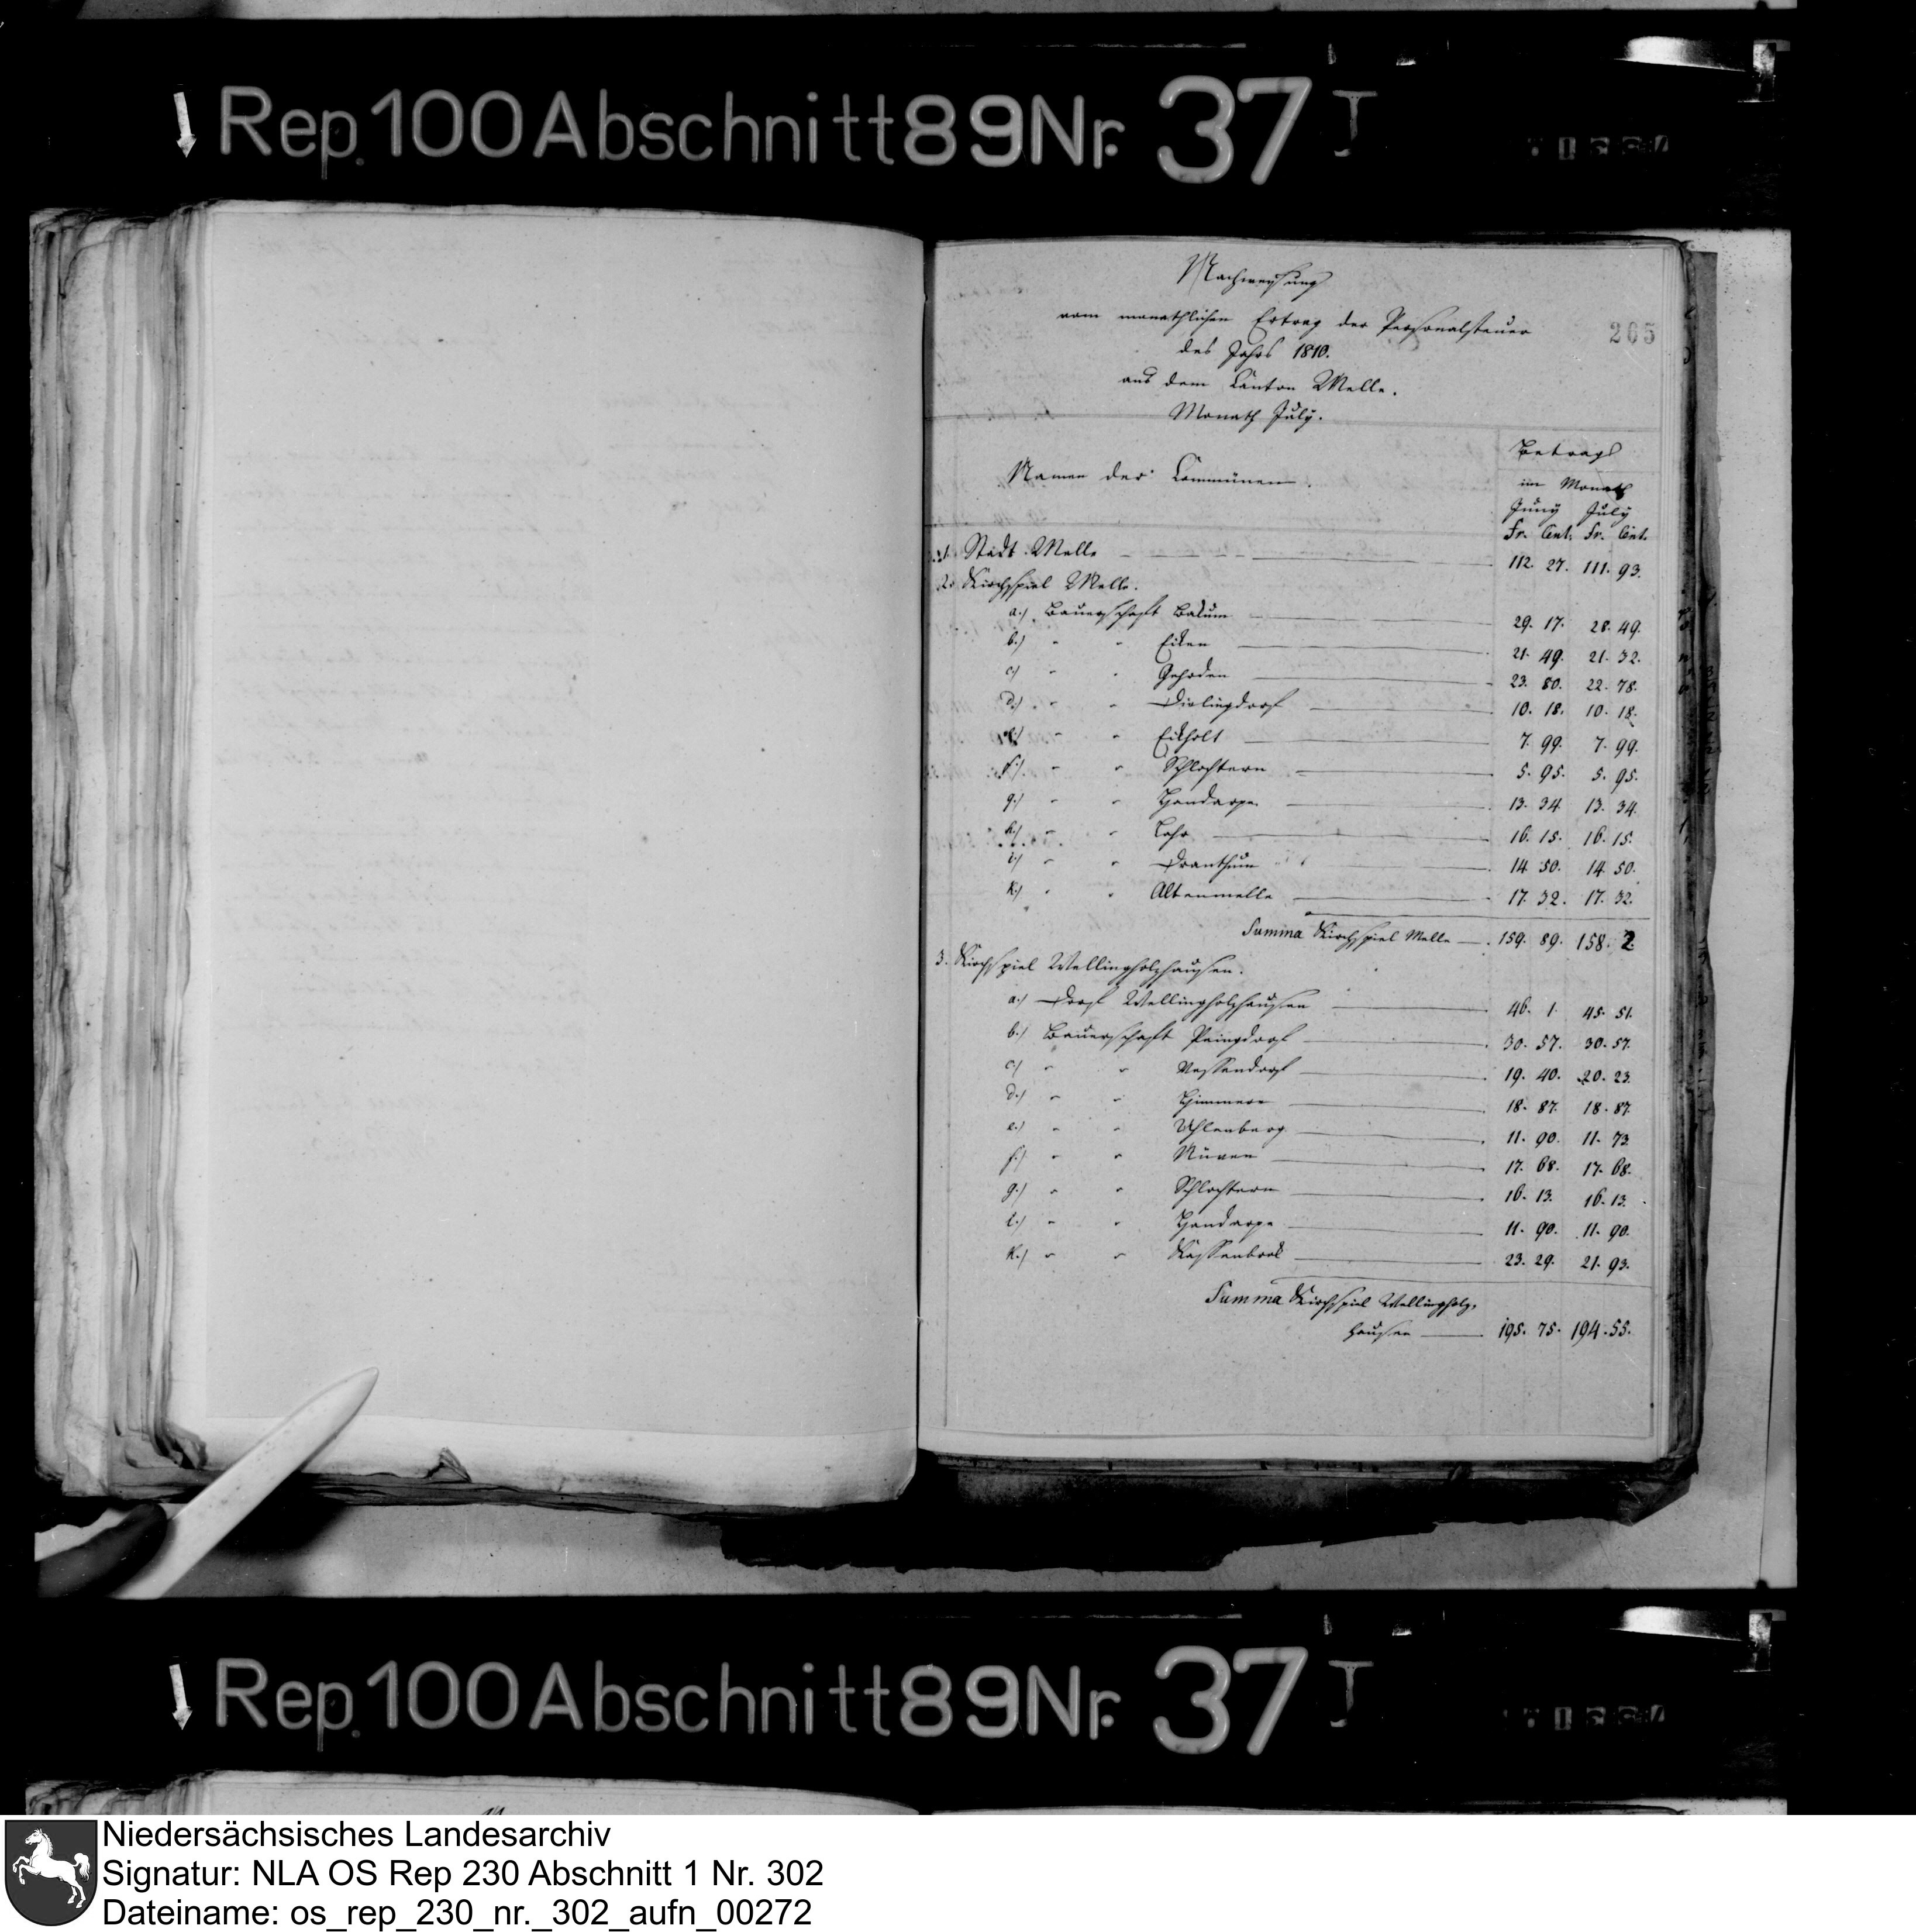 Rep. 100 Abschnitt 89 Nr. 37 I
Nachweisung
vom monathlichen Ertrag der Personalsteuer
265
des Jahrs 1810.
aus dem Canton Melle.
Monath July.
Betrag
Namen der Communen.
im Monath
Juny July
Fr. Cent. Fr. Cent.
1. Stadt Melle 112. 27. 111. 93.
2. Kirchspiel Melle.
a.) Bauerschaft Bakum 29. 17. 28. 49.
b.) " " Eiken 21. 49. 21. 32.
c) " " Gehrden 23. 80. 22. 78.
d.) " " Dielingdorf 10. 18. 10. 18.
e.) " " Eikholt 7. 99. 7. 99.
f.) " " Schlochtern 5. 95. 5. 95.
g.) " " Handarpe 13. 34. 13. 34.
h.) " " Laer 16. 15. 16. 15.
i.) " " Dranthum 14. 50. 14. 50.
k.) " " Altenmelle 17. 32. 17. 32.
Summa Kirchspiel Melle 159. 89. 158. 2
3. Kirchspiel Wellingholzhausen.
a.) Dorf Wellingholzhausen 46. 1. 45. 51.
b.) Bauerschaft Peingdorf 30. 57. 30. 57.
c) " " Vessendorf 19. 40. 20. 23.
d.) " " Himmern 18. 87. 18. 87.
e.) " " Uhlenberg 11. 90. 11. 73.
f.) " " Nüven 17. 68. 17. 68.
g.) " " Schlochtern 16. 13. 16. 13.
i.) " " Handarpe 11. 90. 11. 90.
k.) " " Kessenbrok 23. 29. 21. 93.
Summa Kirchspiel Wellingholz,
hausen 195. 75. 194. 55.
Rep. 100 Abschnitt 89 Nr. 37 I
Niedersächsisches Landesarchiv
Signatur: NLA OS Rep 230 Abschnitt 1 Nr. 302
Dateiname: os_rep_230_nr._302_aufn_00272